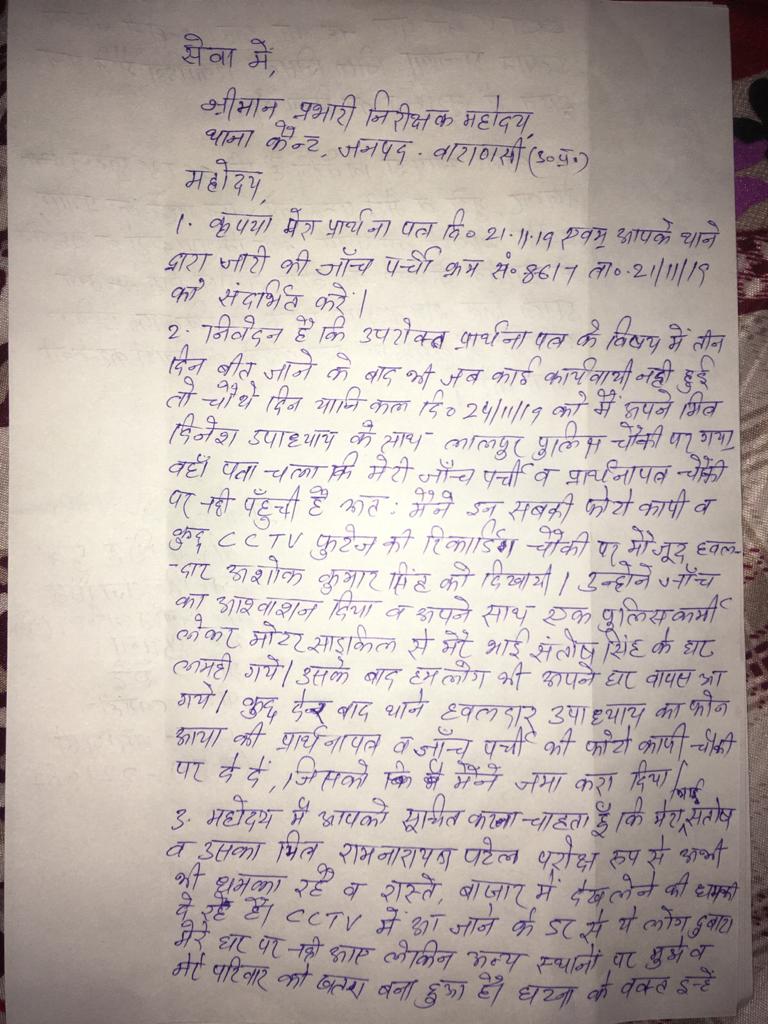 सेवा में,
श्रीमान प्रभारी निरीक्षक महोदय,
थाना कैन्ट, जनपद - वाराणसी (उ०प्र०)
महोदय,
1. कृपया मेरा प्रार्थना पत्र दि० 21.11.19 एवम् आपके थाने
द्वारा जारी की जाँच पर्ची क्रम सं० 8617 ता०. 21/11/19
को संदर्भित करें।
2. निवेदन है कि उपरोक्त प्रार्थना पत्र के विषय में तीन
दिन बीत जाने के बाद भी जब कोई कार्यवायी नही हुई
तो चौथे दिन यानि कल दि० 24/11/19 को मैं अपने मित्र
दिनेश उपाध्याय के साथ लालपुर पुलिस चौकी पर गया,
वहाँ पता चला कि मेरी जाँच पर्ची व प्रार्थनापत्र चौकी
पर नही पहुँची है अत: मैंने इन सबकी फोटो कापी व
कुछ CCTV फुटेज की रिकार्डिंग चौकी पर मौजूद हवल-
-दार अशोक कुमार सिंह को दिखाया। उन्होने जाँच
का आश्वाशन दिया व अपने साथ एक पुलिस कर्मी
लेकर मोटर साइकिल से मेरे भाई संतोष सिंह के घर
लमही गये। उसके बाद हमलोग भी अपने घर वापस आ
गये। कुछ देर बाद थाने हवलदार उपाध्याय का फोन
आया की प्रार्थनापत्र व जाँच पर्ची की फोटो कापी चौकी
पर दे दें, जिसको कि मैंने जमा करा दिया।
3. महोदय मैं आपको सूचित करना चाहता हूँ कि मेरा भाई संतोष
व उसका मित्र रामनारायण पटेल परोक्ष रुप से अभी
भी धमका रहे व रास्ते, बाजार में देख लेने की धमकी
दे रहे हैं। CCTV में आ जाने के डर से ये लोग दुबारा
मेरे घर पर नही आए लेकिन अन्य स्थानों पर मुझे व
मेरे परिवार को खतरा बना हुआ है। घटना के वक्त इन्हें